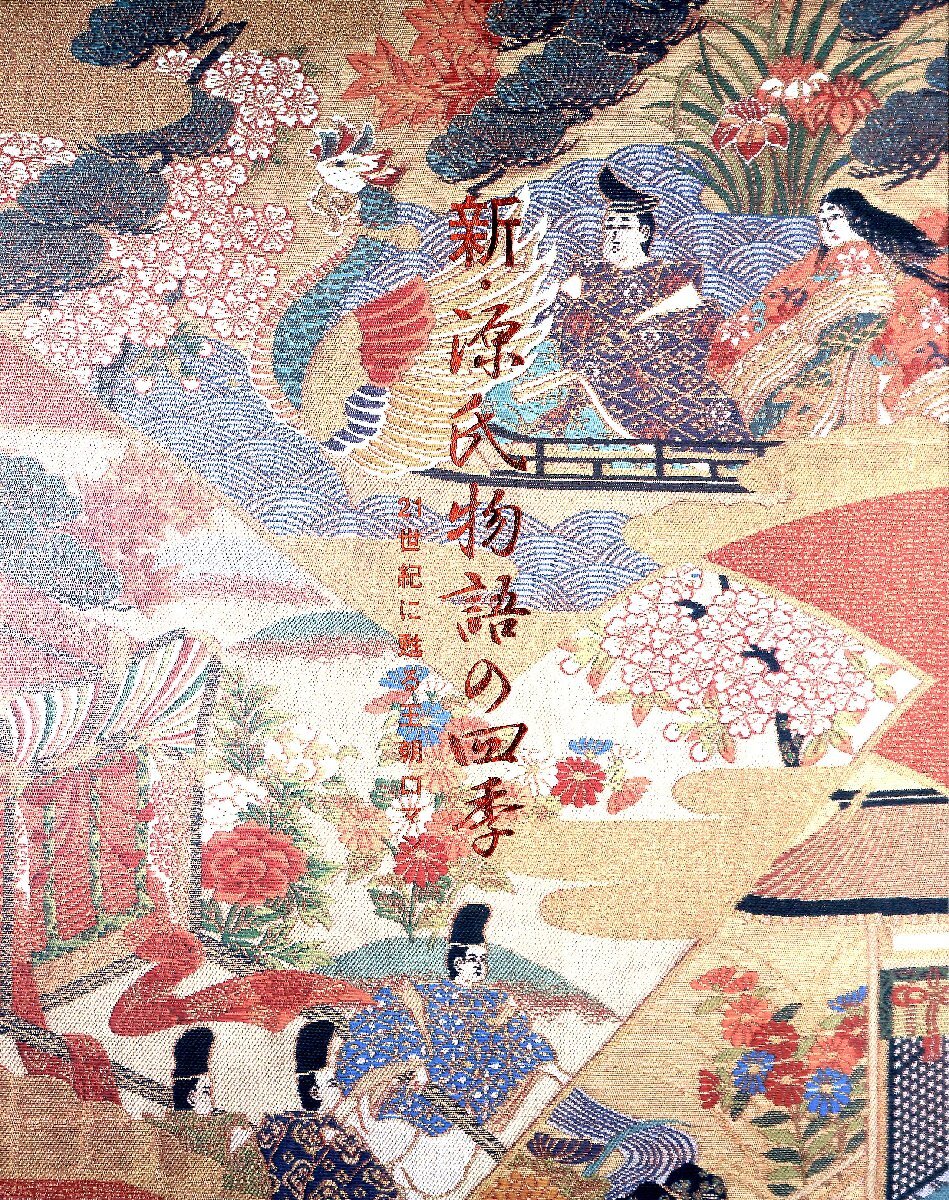 新・源氏物語の四季
21世紀に甦る王朝ロマン